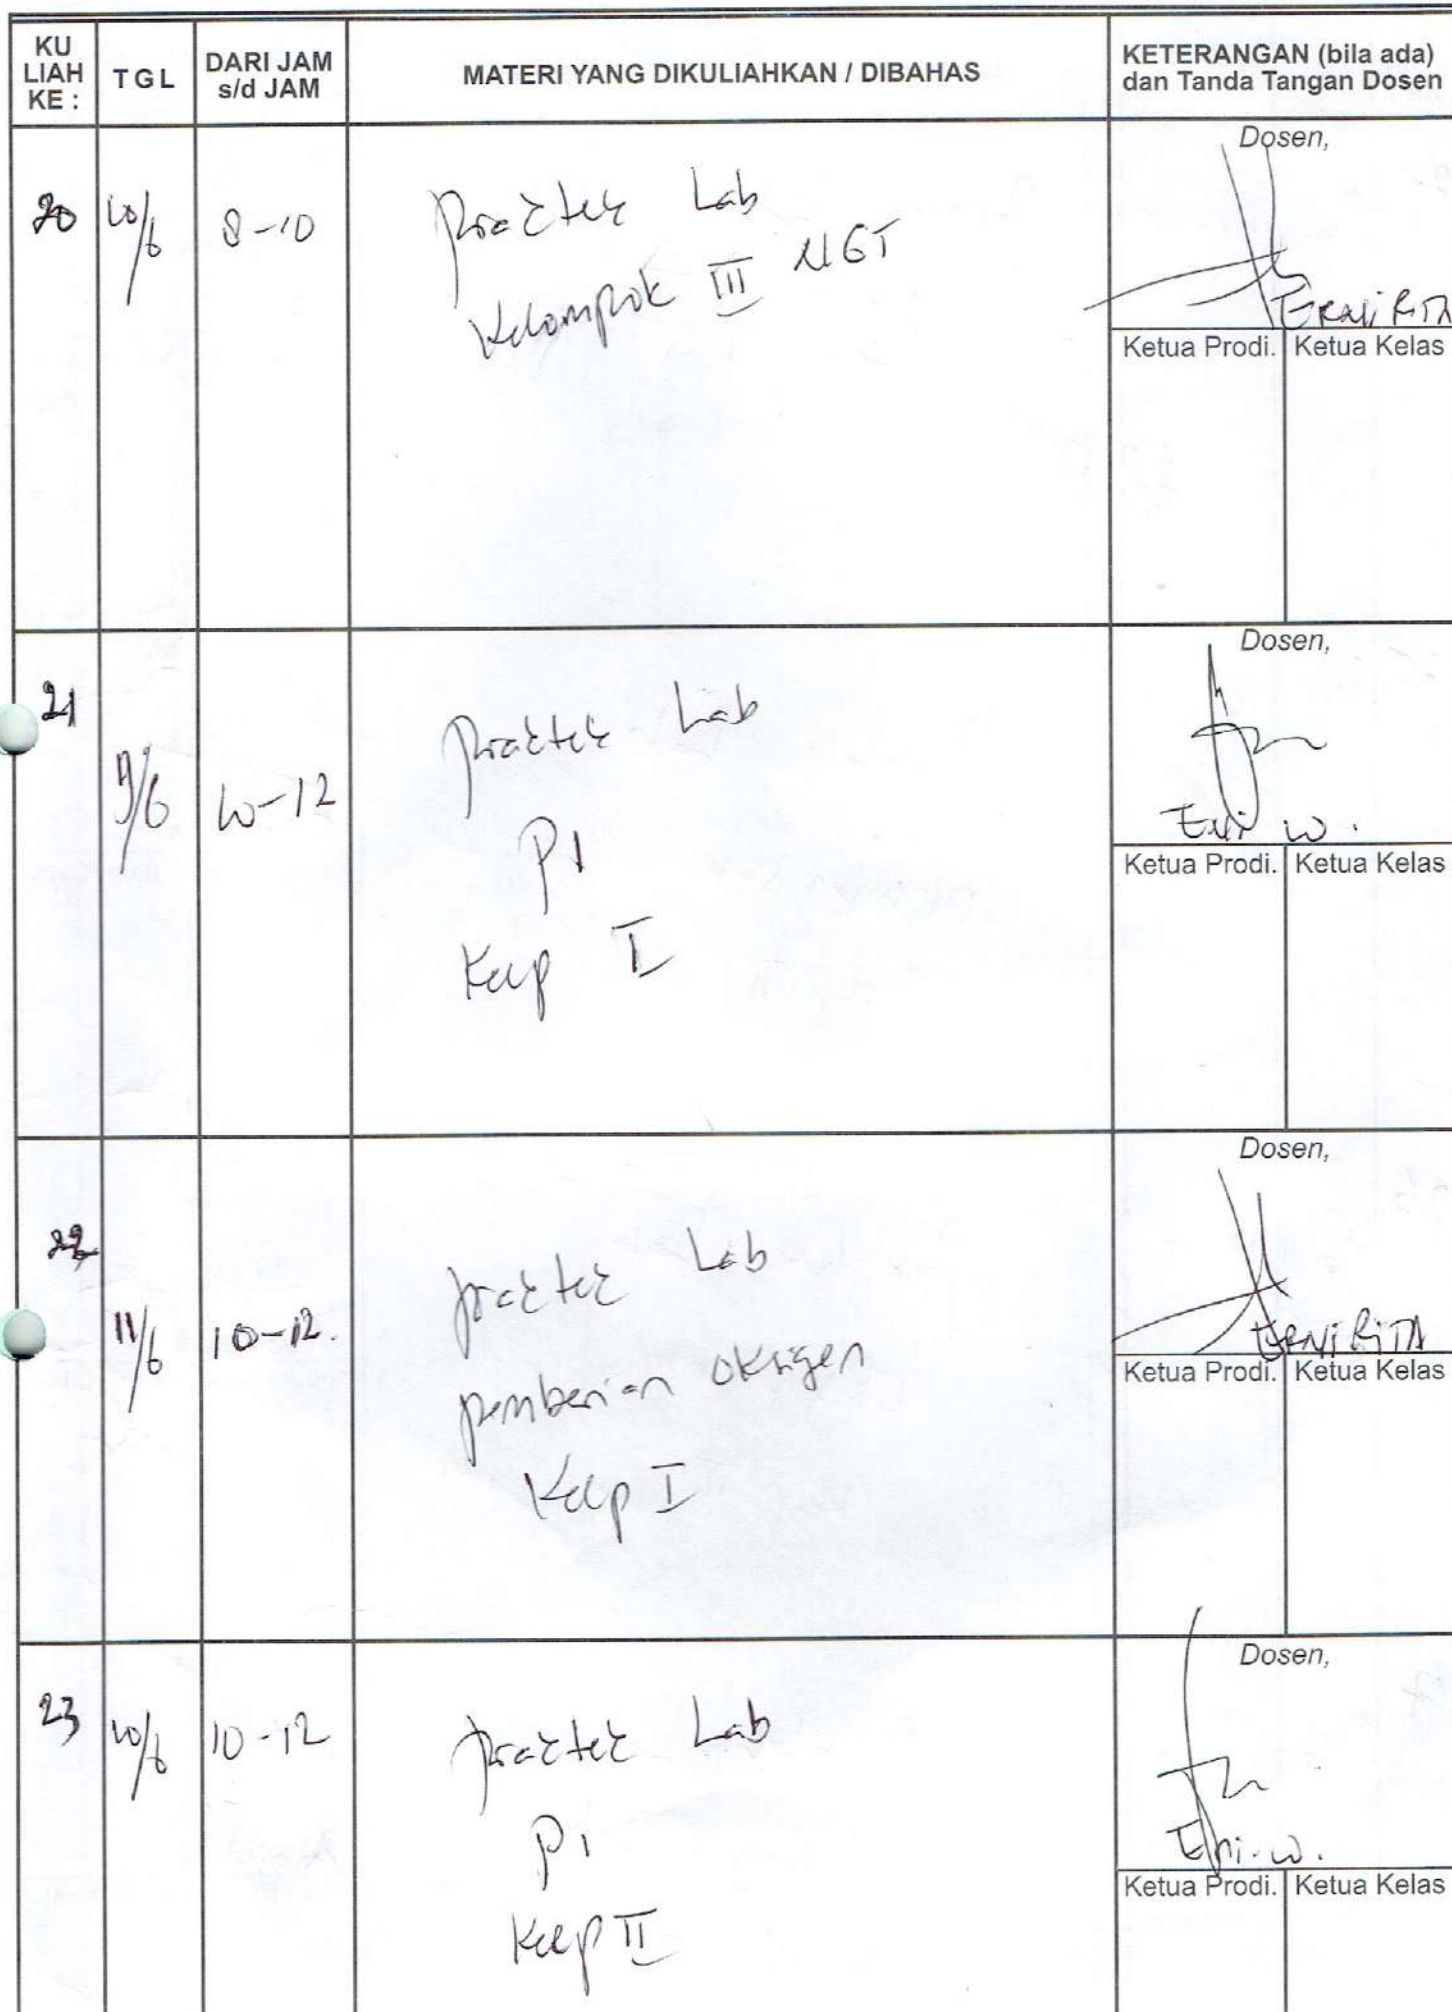 KU LIAH KE :
TGL
DARI JAM s/d JAM
MATERI YANG DIKULIAHKAN / DIBAHAS
KETERANGAN (bila ada) dan Tanda Tangan Dosen
20
10/6
8-10
Praktek Lab
Kelompok III NGT
Dosen,
ERNI RITA
Ketua Prodi.
Ketua Kelas
21
9/6
10-12
Praktek Lab
P1
Kelp I
Dosen,
Eni W.
Ketua Prodi.
Ketua Kelas
22
11/6
10-12.
praktek Lab
pemberian oksigen
Kelp I
Dosen,
ERNI RITA
Ketua Prodi.
Ketua Kelas
23
10/6
10-12
praktek Lab
P1
Kelp II
Dosen,
Eni. W.
Ketua Prodi.
Ketua Kelas